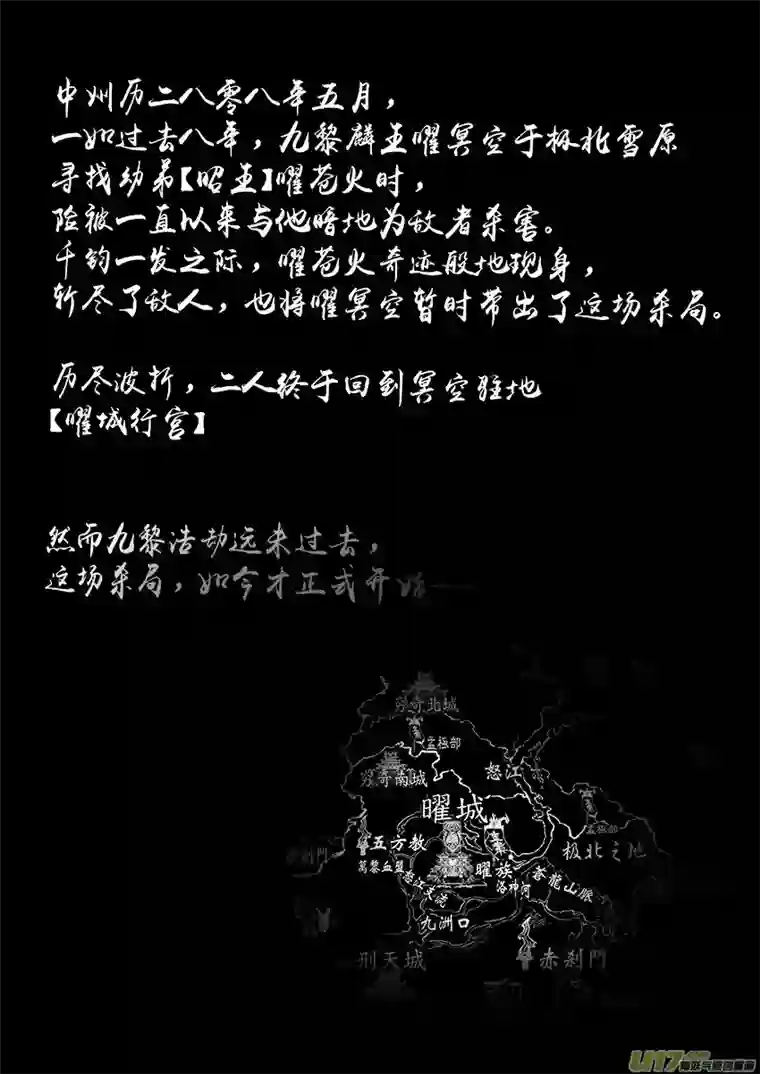 中州历二八零八年五月，
一如过去八年，九黎麟主曜冥空于极北雪原
寻找幼弟【昭王】曜苍火时，
险被一直以来与他暗地为敌者杀害。
千钧一发之际，曜苍火奇迹般地现身，
斩尽了敌人，也将曜冥空暂时带出了这场杀局。
历尽波折，二人终于回到冥空驻地
【曜城行宫】
然而九黎浩劫远未过去，
这场杀局，如今才正式开始——
穷奇北城
孟極部
穷奇南城
怒江
曜城
孟極部
五方教
极北之地
刹門
萬黎血盟
曜族
蒼龍山脈
怒江支流
洛神河
九洲口
刑天城
赤刹門
U17